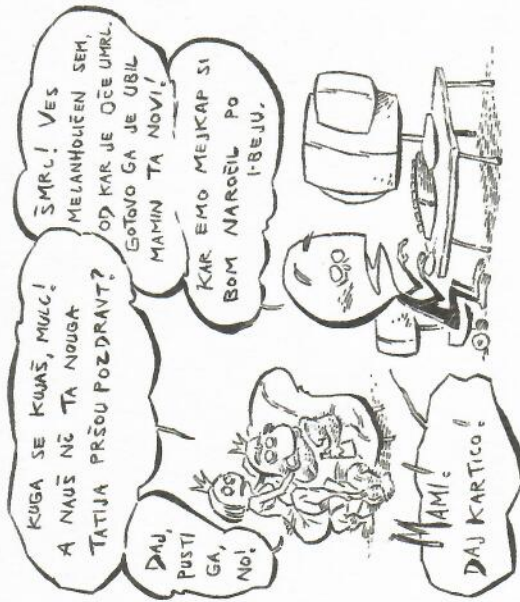 KUGA SE KUJAŠ, MULC!
A NAUŠ NČ TA NOUGA
TATIJA PRŠOU POZDRAVT?
DAJ,
PUSTI
GA,
NO!
ŠMRL! VES
MELANHOLIČEN SEM,
OD KAR JE OČE UMRL.
GOTOVO GA JE UBIL
MAMIN TA NOVI!
KAR EMO MEJKAP SI
BOM NAROČIL PO
I-BEJU.
MAMI!
DAJ KARTICO!